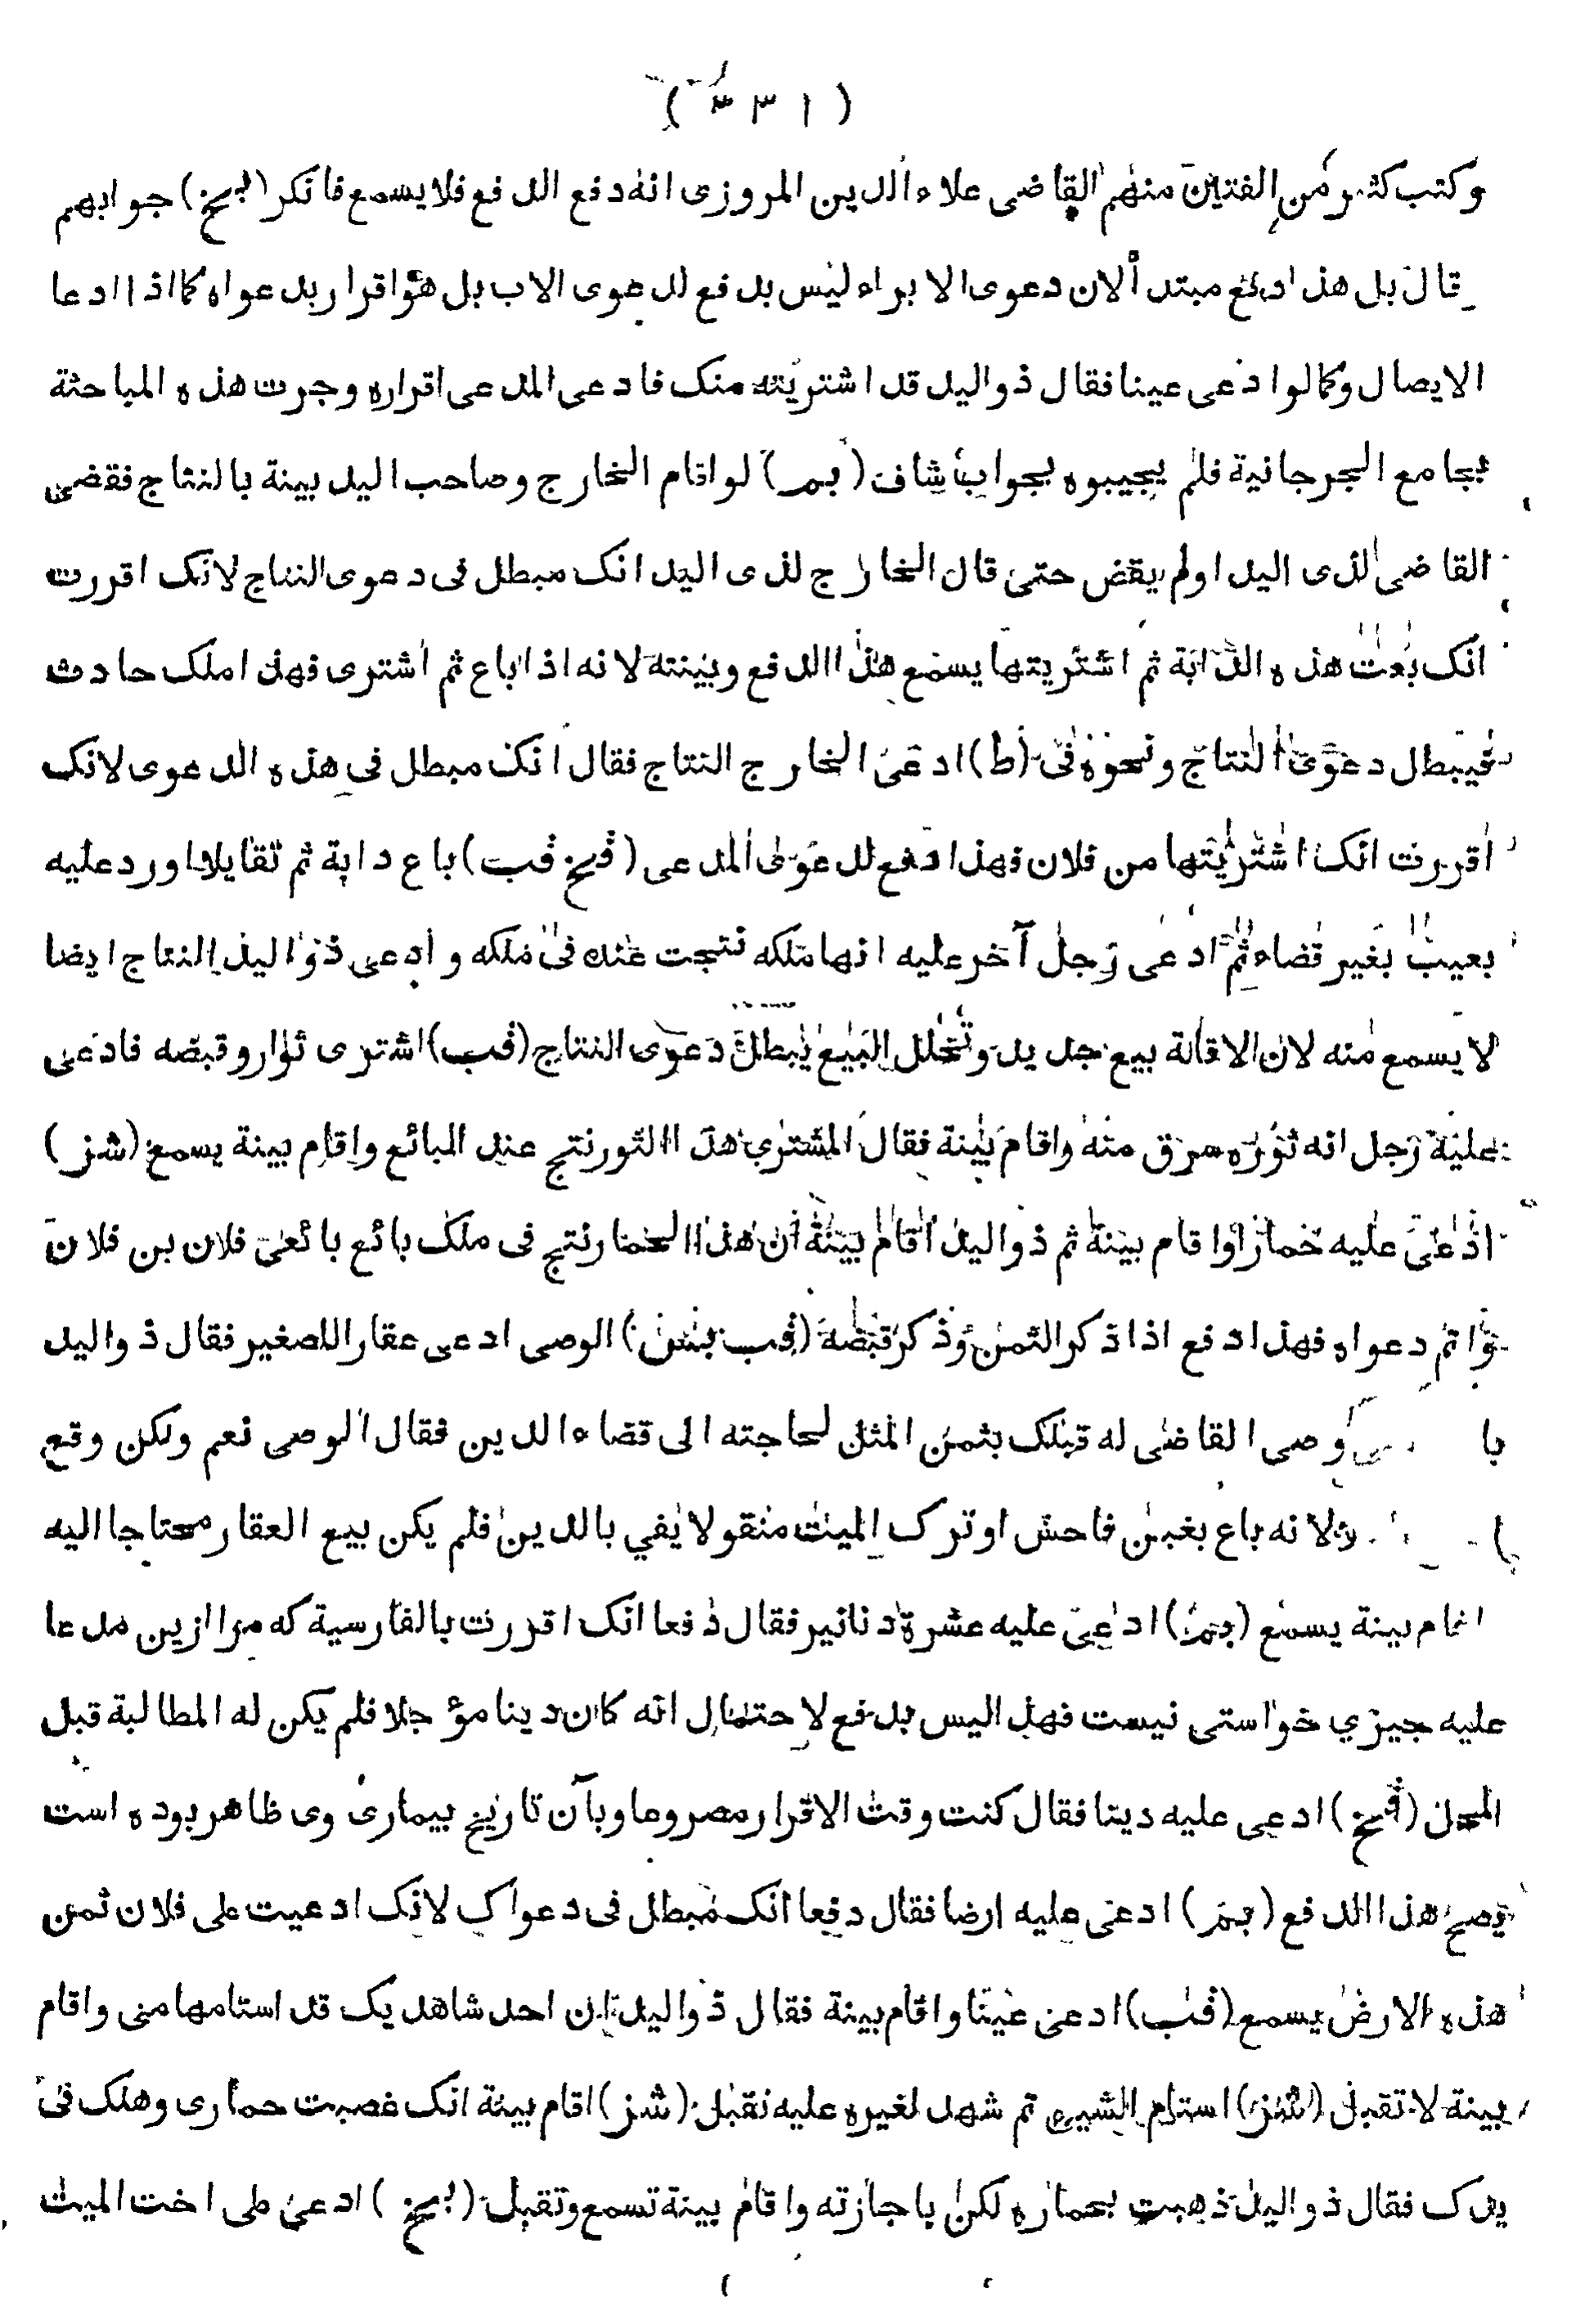 (٣٣١)
وكتب كثير من المفتين منهم القاضى علاء الدين المروزى انه دفع الدفع فلا يسمع فانكر (بخ) جوابهم
قال بل هذا دفع مبتدأ لان دعوى الابراء ليس بدفع لدعوى الاب بل هو اقرار بدعواه كما اذا ادعا
الايصال وكما لو ادعى عينا فقال ذو اليد قد اشتريته منك فادعى المدعى اقراره وجرت هذه المباحثة
بجامع الجرجانية فلم يجيبوه بجواب شاف (بم) لو اقام الخارج وصاحب اليد بينة بالنتاج فقضى
القاضى لذى اليد اولم يقض حتى قال الخارج لذى اليد انك مبطل فى دعوى النتاج لانك اقررت
انك بعت هذه الدابة ثم اشتريتها يسمع هذا الدفع وبينته لانه اذا باع ثم اشترى فهذا ملك حادث
فيبطل دعوى النتاج ونحوه فى (ط) ادعى الخارج النتاج فقال انك مبطل فى هذه الدعوى لانك
اقررت انك اشتريتها من فلان فهذا دفع لدعوى المدعى (فخ فب) باع دابة ثم تقايلا او رد عليه
بعيب بغير قضاء ثم ادعى رجل آخر عليه انها ملكه نتجت عنده فى ملكه وادعى ذو اليد النتاج ايضا
لا يسمع منه لان الاقالة بيع جديد وتخلل البيع يبطل دعوى النتاج (فب) اشترى ثوار وقبضه فادعى
عليه رجل انه ثوره سرق منه واقام بينة فقال المشترى هذا الثور نتج عند البائع واقام بينة يسمع (شز)
ادعى عليه حمارا واقام بينة ثم ذو اليد اقام بينة ان هذا الحمار نتج فى ملك بائع بائعى فلان بن فلان
واتم دعواه فهذا دفع اذا ذكر الثمن وذكر قبضه (فب بش) الوصى ادعى عقارا للصغير فقال ذو اليد
با وصى القاضى له قبلك بثمن المثل لحاجته الى قضاء الدين فقال الوصى نعم ولكن وقع
لانه باع بغبن فاحش او ترك الميت منقولا يفي بالدين فلم يكن بيع العقار محتاجا اليه
اقام بينة يسمع (بم) ادعى عليه عشرة دنانير فقال دفعا انك اقررت بالفارسية كه مرا ازين مدعا
عليه جيزي خواستى نيست فهذا ليس بدفع لاحتمال انه كان دينا مؤجلا فلم يكن له المطالبة قبل
المحل (فخ) ادعى عليه دينا فقال كنت وقت الاقرار مصروعا وبآن تاريخ بيمارى وى ظاهر بوده است
يصح هذا الدفع (بم) ادعى عليه ارضا فقال دفعا انك مبطل فى دعواك لانك ادعيت على فلان ثمن
هذه الارض يسمع (فب) ادعى عينا واقام بينة فقال ذو اليد ان احد شاهديك قد استامها منى واقام
بينة لا تقبل (شز) استام الشيء ثم شهد لغيره عليه تقبل (شز) اقام بينة انك غصبت حمارى وهلك فى
يدك فقال ذو اليد ذهبت بحماره لكن باجازته واقام بينة تسمع وتقبل (بخ) ادعى على اخت الميت